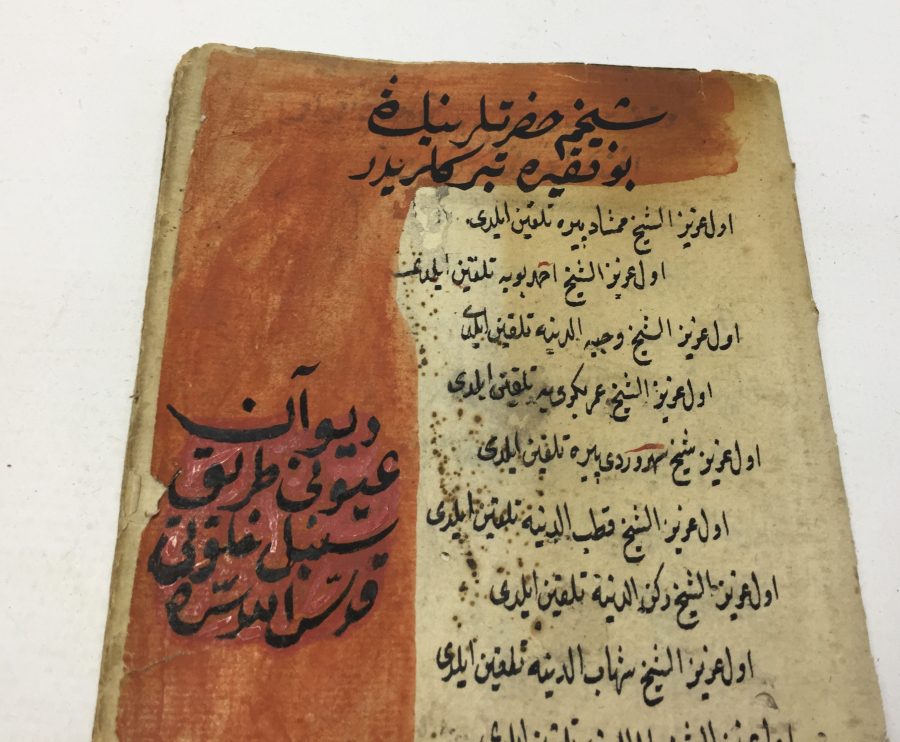 شیخیم حضرتلرینك
بو فقیره تبركلریدر
اول عزیز الشیخ ممشاد پیره تلقین ایلدی
اول عزیز الشیخ احمد بویه تلقین ایلدی
اول عزیز الشیخ وجیه الدینه تلقین ایلدی
اول عزیز الشیخ عمر بکری یه تلقین ایلدی
اول عزیز شیخ سهروردی پیره تلقین ایلدی
اول عزیز الشیخ قطب الدینه تلقین ایلدی
اول عزیز الشیخ رکن الدینه تلقین ایلدی
اول عزیز الشیخ شهاب الدینه تلقین ایلدی
دیوان
عیونی طریق
سنبل خلوتی
قدس الله سره